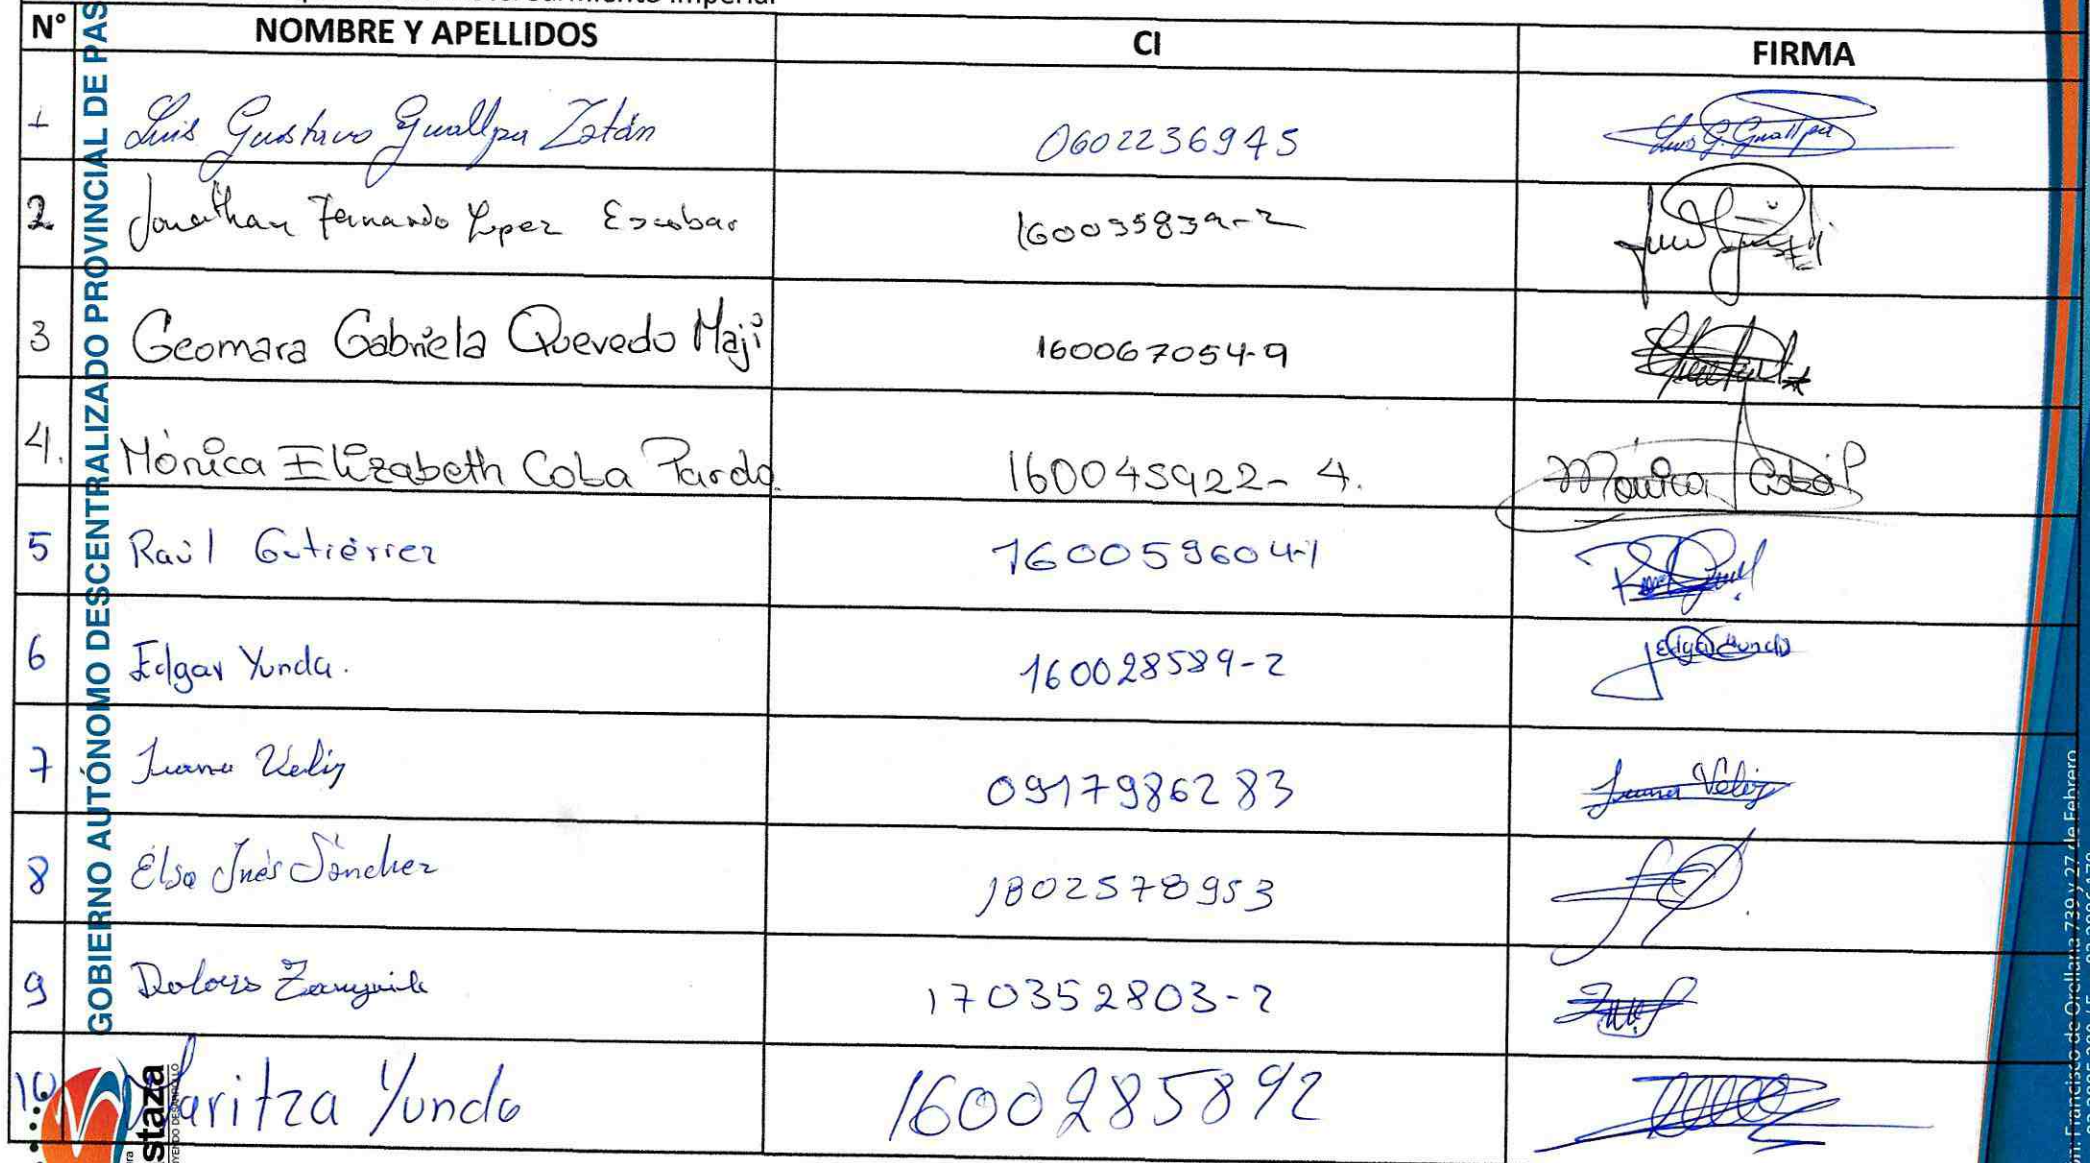 miento Imperial
N° NOMBRE Y APELLIDOS CI FIRMA
1 Luis Gustavo Guallpa Zatán 0602236945 Luis G. Guallpa
2 Jonathan Fernando Lopez Escobar 160035839-2
3 Geomara Gabriela Quevedo Maji 160067054-9
4. Mónica Elizabeth Coba Pardo 160045922-4. Mónica Coba P
5 Raúl Gutiérrez 160059604-1
6 Edgar Yunda. 160028589-2 Edgar Yunda
7 Juana Veliz 0917986283 Juana Veliz
8 Elsa Inés Sánchez 1802578953
9 Dolores 170352803-2
10 Maritza Yunda 1600285892
GOBIERNO AUTÓNOMO DESCENTRALIZADO PROVINCIAL DE PAS
staza
YENDO DESARROLLO
ón: Francisco de Orellana 739 y 27 de Febrero